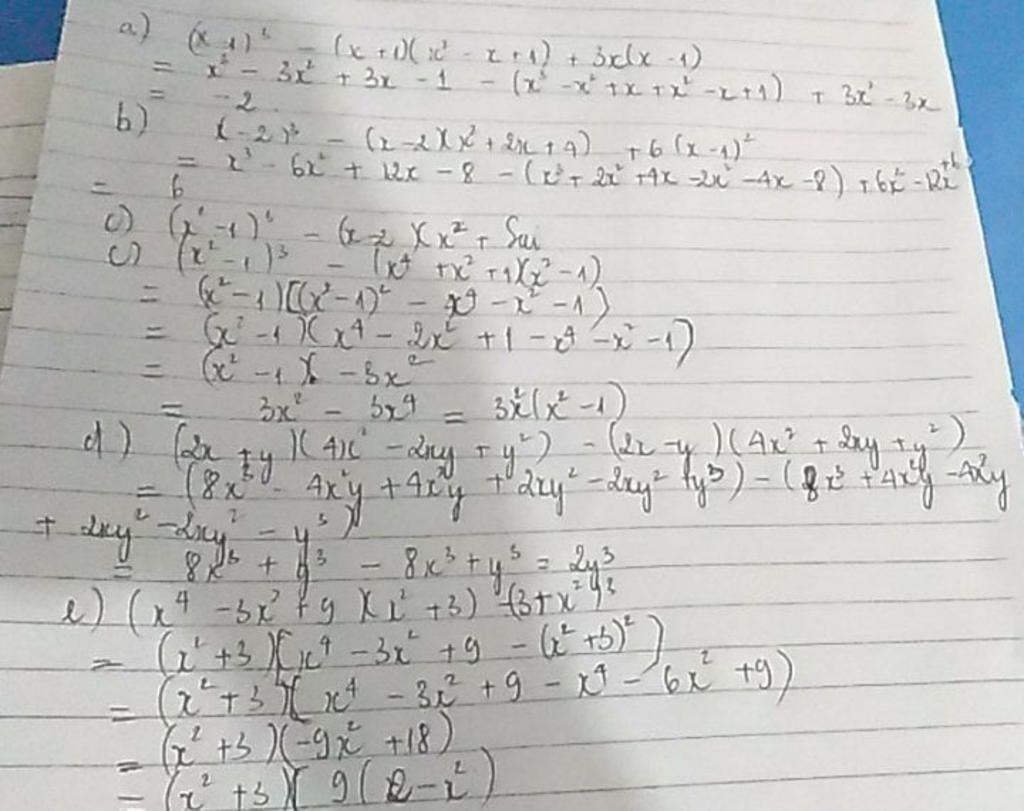 a) (x-1)³ - (x+1)(x² - x + 1) + 3x(x - 1)
= x³ - 3x² + 3x - 1 - (x³ - x² + x + x² - x + 1) + 3x² - 3x
= -2
b) (-2)³ - (x-2)(x² + 2x + 4) + 6(x-1)²
= x³ - 6x² + 12x - 8 - (x³ + 2x² + 4x - 2x² - 4x - 8) + 6x² - 12x + 6
= 6
c) (x² - 1)³ - (x-2)(x² + Sai
c) (x² - 1)³ - (x⁴ + x² + 1)(x² - 1)
= (x² - 1)[(x² - 1)² - x⁴ - x² - 1)
= (x² - 1)(x⁴ - 2x² + 1 - x⁴ - x² - 1)
= (x² - 1). - 3x²
= 3x² - 3x⁴ = 3x²(x² - 1)
d) (2x + y)(4x² - 2xy + y²) - (2x - y)(4x² + 2xy + y²)
= (8x³ - 4x²y + 4x²y + 2xy² - 2xy² + y³) - (8x³ + 4x²y - 4x²y
+ 2xy² - 2xy² - y³)
= 8x³ + y³ - 8x³ + y³ = 2y³
e) (x⁴ - 3x² + 9)(x² + 3) - (3 + x²)³
= (x² + 3)[x⁴ - 3x² + 9 - (x² + 3)²]
= (x² + 3)(x⁴ - 3x² + 9 - x⁴ - 6x² + 9)
= (x² + 3)(-9x² + 18)
= (x² + 3)( 9(2 - x²)